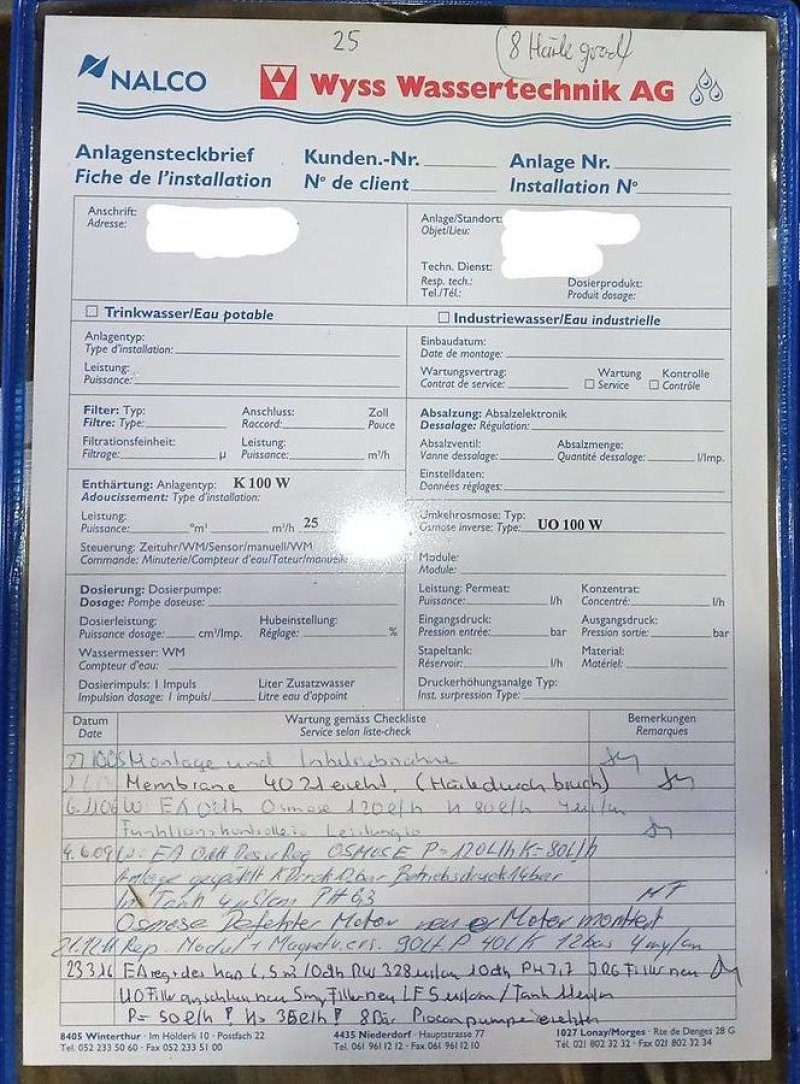 25
(8 Härte grad)
NALCO
Wyss Wassertechnik AG
Anlagensteckbrief Kunden.-Nr. Anlage Nr.
Fiche de l'installation N° de client Installation N°
Anschrift:
Adresse:
Anlage/Standort:
Objet/Lieu:
Techn. Dienst:
Resp. tech.: Dosierprodukt:
Tel./Tél.: Produit dosage:
Trinkwasser/Eau potable
Industriewasser/Eau industrielle
Anlagentyp:
Type d'installation:
Leistung:
Puissance:
Einbaudatum:
Date de montage:
Wartungsvertrag: Wartung Kontrolle
Contrat de service: Service Contrôle
Filter: Typ: Anschluss: Zoll
Filtre: Type: Raccord: Pouce
Filtrationsfeinheit: Leistung:
Filtrage: µ Puissance: m³/h
Absalzung: Absalzelektronik
Dessalage: Régulation:
Absalzventil: Absalzmenge:
Vanne dessalage: Quantité dessalage: l/Imp.
Einstelldaten:
Données réglages:
Enthärtung: Anlagentyp: K 100 W
Adoucissement: Type d'installation:
Leistung:
Puissance: °m³ m³/h 25
Steuerung: Zeituhr/WM/Sensor/manuell/WM
Commande: Minuterie/Compteur d'eau/Tateur/manuelle
Umkehrosmose: Typ:
Osmose inverse: Type: UO 100 W
Module:
Module:
Dosierung: Dosierpumpe:
Dosage: Pompe doseuse:
Dosierleistung: Hubeinstellung:
Puissance dosage: cm³/Imp. Réglage: %
Wassermesser: WM
Compteur d'eau:
Dosierimpuls: 1 Impuls Liter Zusatzwasser
Impulsion dosage: 1 impuls/ Litre eau d'appoint
Leistung: Permeat: Konzentrat:
Puissance: l/h Concentré: l/h
Eingangsdruck: Ausgangsdruck:
Pression entrée: bar Pression sortie: bar
Stapeltank: Material:
Réservoir: l/h Matériel:
Druckerhöhungsanalge Typ:
Inst. surpression Type:
Datum Wartung gemäss Checkliste Bemerkungen
Date Service selon liste-check Remarques
Montage und Inbetriebnahme
Membrane 4021 ersetzt. (Härtedurchbruch)
6.11.06 W: EA 0dh Osmose 120l/h K 80l/h
Funktionskontrolle
4.6.09 W: EA 0dH OSMOSE P=120L/h K=80L/h
Anlage gespühlt Betriebsdruck 14bar
im Tank 4µS/cm PH 6,3
Osmose Defekter Motor neuer Motor montiert
Rep. Modul + Magnetv. ers. 90Lt. P 40Lt K 12bar
23.3.16 EA 10dh PH 7,7 Filter neu
UO Filter neu
P= 50 l/h K= 35 l/h 8 Bar
8405 Winterthur · Im Hölderli 10 · Postfach 22 4435 Niederdorf · Hauptstrasse 77 1027 Lonay/Morges · Rte de Denges 28 G
Tel. 052 233 50 60 · Fax 052 233 51 00 Tel. 061 961 12 12 · Fax 061 961 12 10 Tél. 021 802 32 32 · Fax 021 802 32 34